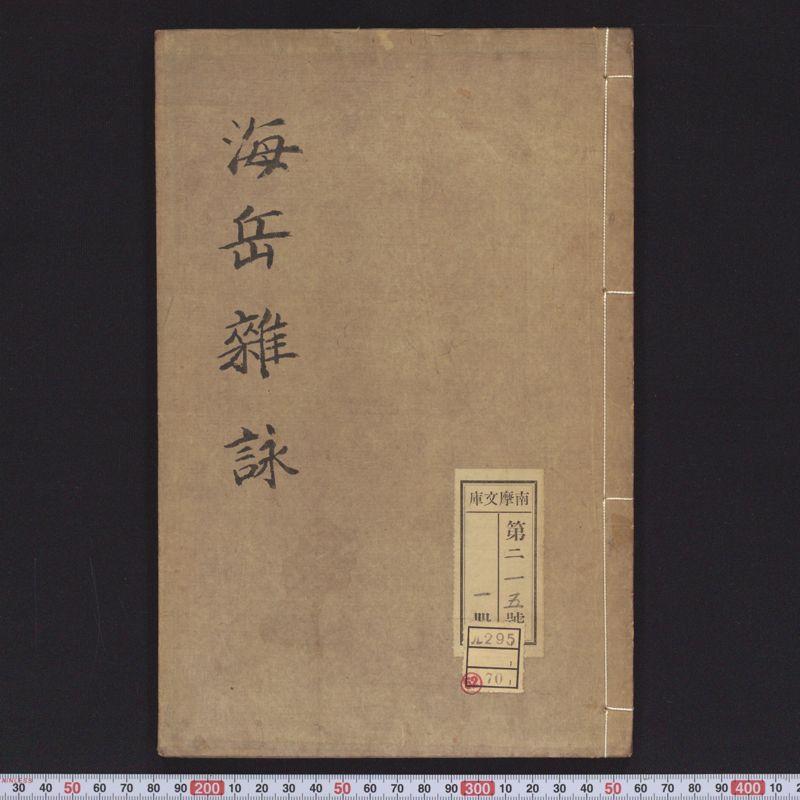 海岳雜詠
南摩文庫
第二一五號
一冊
ル295
70
STAINLESS
30 40 50 60 70 80 90 200 10 20 30 40 50 60 70 80 90 300 10 20 30 40 50 60 70 80 90 400 10